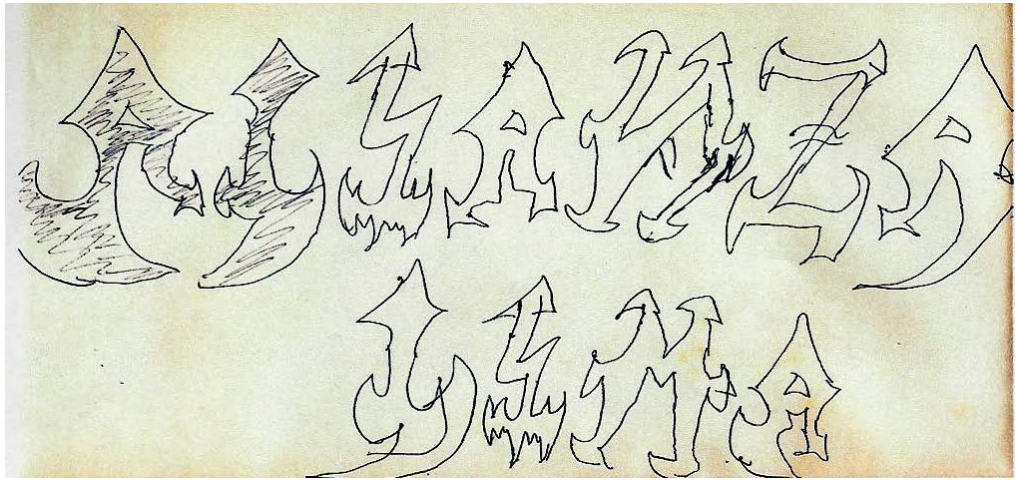 ALIANZA
LIMA